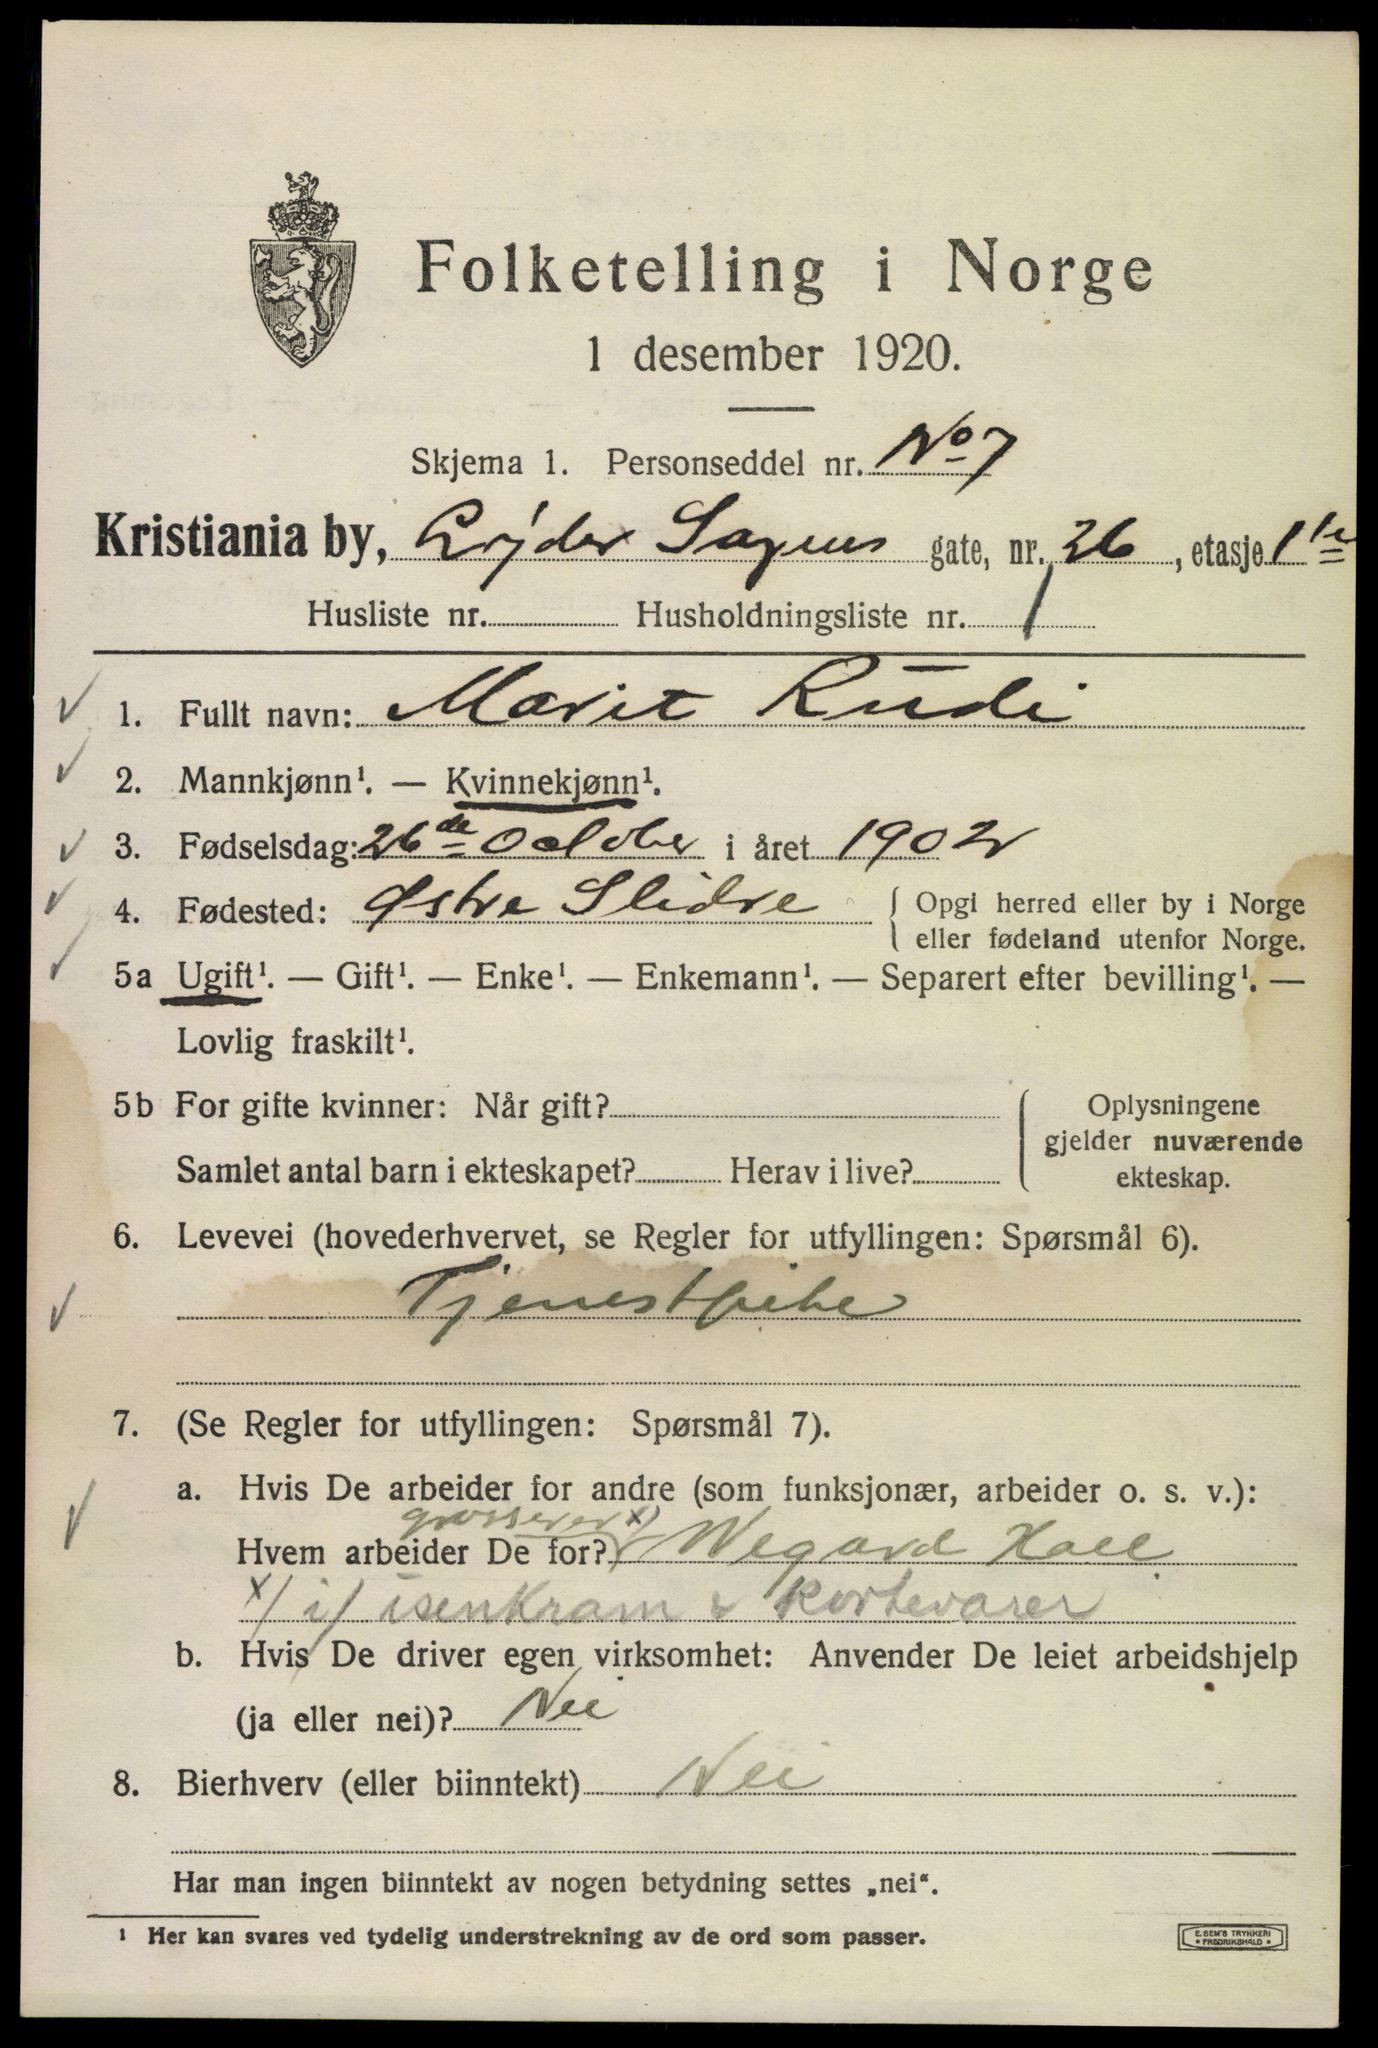 Folketelling i Norge
1 desember 1920.
Skjema 1. Personseddel nr. No 7
Kristiania by, Lyder Sagens gate, nr. 26, etasje 1ste
Husliste nr. Husholdningsliste nr. 1
1. Fullt navn: Marit Rudi
2. Mannkjønn¹. — Kvinnekjønn¹.
3. Fødselsdag: 26de October i året 1902
4. Fødested: Østre Slidre { Opgi herred eller by i Norge
eller fødeland utenfor Norge.
5a Ugift¹. — Gift¹. — Enke¹. — Enkemann¹. — Separert efter bevilling¹. —
Lovlig fraskilt¹.
5b For gifte kvinner: Når gift? { Oplysningene
gjelder nuværende
Samlet antal barn i ekteskapet? Herav i live? ekteskap.
6. Levevei (hovederhvervet, se Regler for utfyllingen: Spørsmål 6).
Tjenestpike
7. (Se Regler for utfyllingen: Spørsmål 7).
a. Hvis De arbeider for andre (som funksjonær, arbeider o. s. v.):
grosserer x)
Hvem arbeider De for? Wegard Hall
x) i isenkram & kortevarer
b. Hvis De driver egen virksomhet: Anvender De leiet arbeidshjelp
(ja eller nei)? Nei
8. Bierhverv (eller biinntekt) Nei
Har man ingen biinntekt av nogen betydning settes „nei“.
¹ Her kan svares ved tydelig understrekning av de ord som passer.
E. SEM'S TRYKKERI
• FREDRIKSHALD •